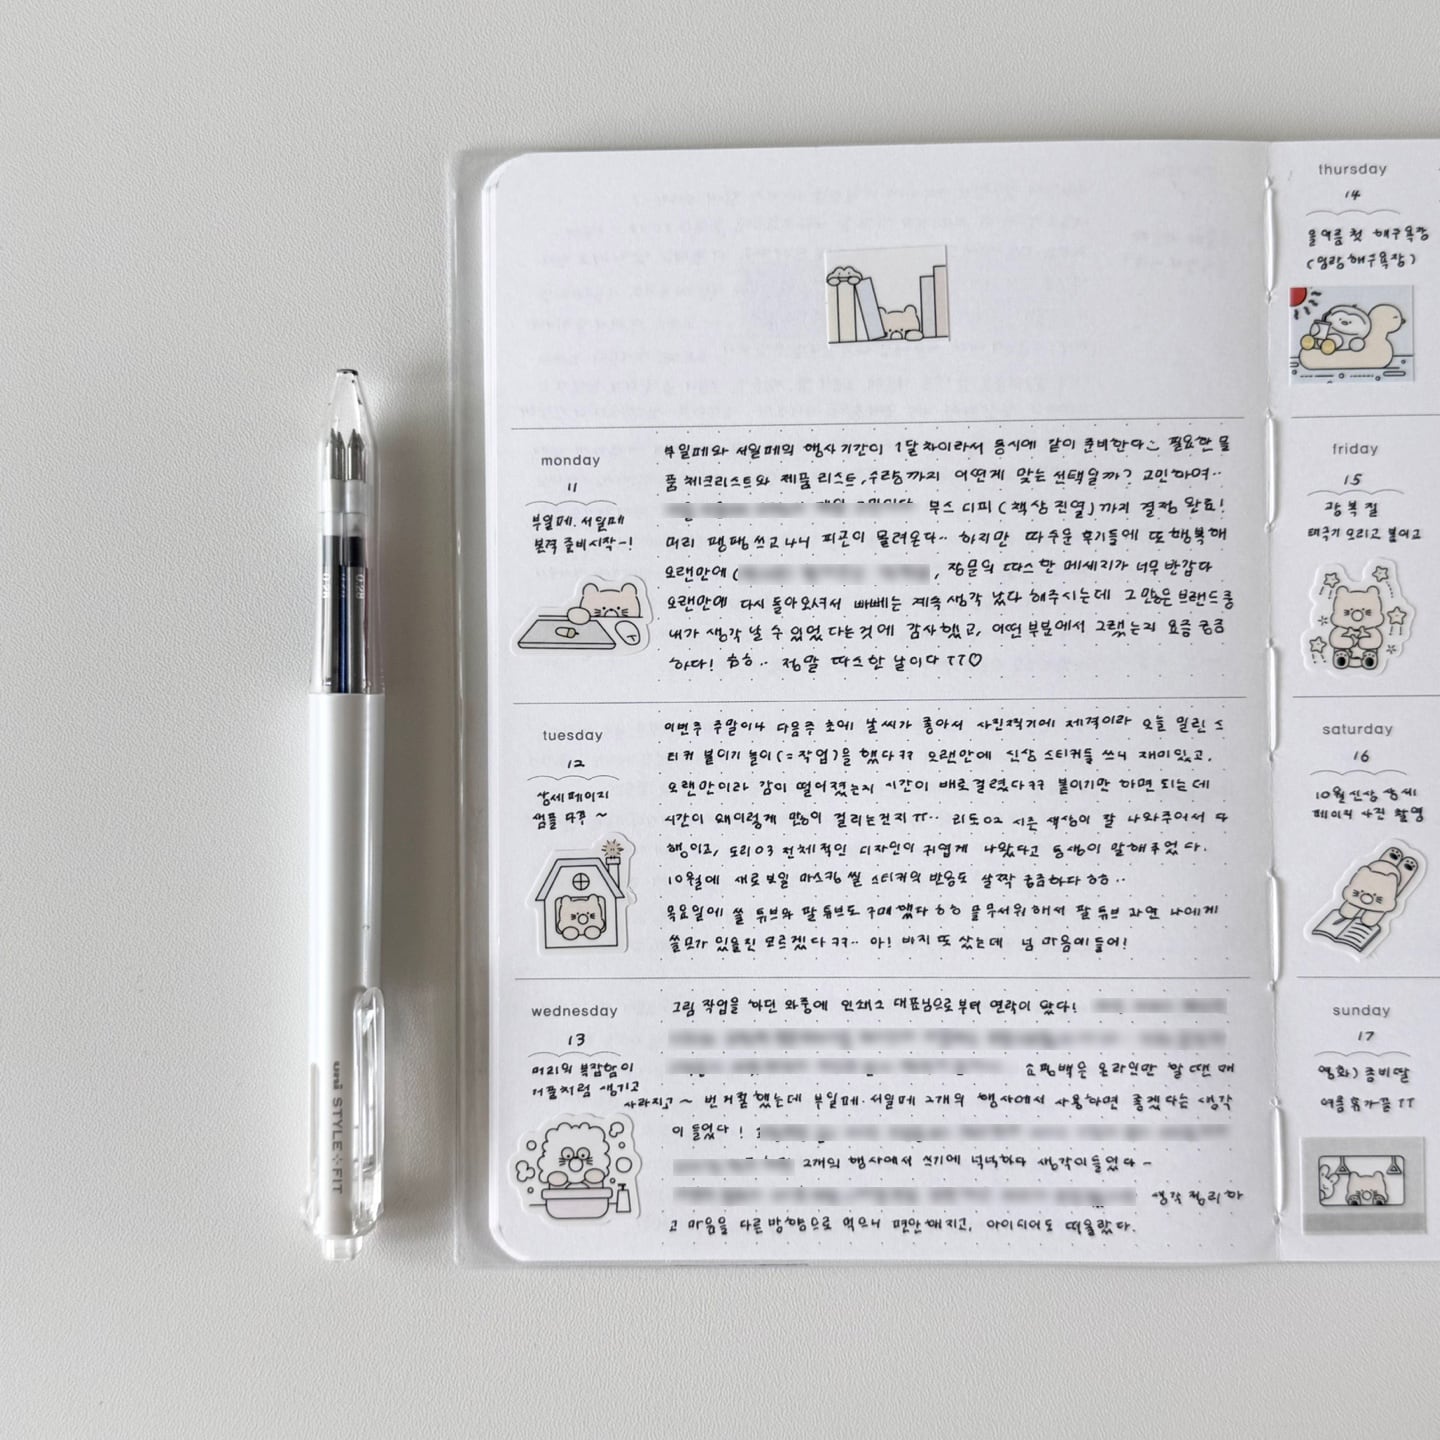 monday
11
부일페.서일페
본격 준비시작~!
부일페와 서일페의 행사기간이 1달차이라서 동시에 같이 준비한다 필요한 물
품 체크리스트와 제품 리스트, 수량까지 어떤게 맞는 선택일까? 고민하여..
부스 디피 (책상 진열) 까지 결정 완료!
머리 팽팽 쓰고나니 피곤이 몰려온다.. 하지만 따수운 후기들에 또 행복해
오랜만에 ( , 장문의 따스한 메세지가 너무 반갑다
오랜만에 다시 돌아오셔서 빠뻬는 계속 생각 났다 해주시는데 그 많은 브랜드 중
내가 생각 날 수 있었다는 것에 감사했고, 어떤 부분에서 그랬는지 요즘 궁금
하다! 하하.. 정말 따스한 날이다 ㅜㅜ♡
tuesday
12
상세페이지
샘플 다꾸 ~
이번주 주말이나 다음주 초에 날씨가 좋아서 사진찍기에 제격이라 오늘 밀린 스
티커 붙이기 놀이(=작업)을 했다ㅋㅋ 오랜만에 신상 스티커들 쓰니 재미있고,
오랜만이라 감이 떨어졌는지 시간이 배로걸렸다ㅋㅋ 붙이기만 하면 되는데
시간이 왜이렇게 많이 걸리는건지ㅠ.. 리도02 시즌 색상이 잘 나와주어서 다
행이고, 도리03 전체적인 디자인이 귀엽게 나왔다고 동생이 말해주었다.
10월에 새로 보일 마스킹 씰 스티커의 반응도 살짝 궁금하다 하하..
목요일에 쓸 튜브와 팔튜브도 구매했다 하하 물무서워해서 팔튜브 과연 나에게
쓸모가 있을진 모르겠다ㅋㅋ.. 아! 바지 또 샀는데 넘 마음에들어!
wednesday
13
머리의 복잡함이
거품처럼 생기고
사라지고~
그림 작업을 하던 와중에 인쇄소 대표님으로부터 연락이 왔다!
쇼핑백은 온라인만 할 땐 매
번 거절했는데 부일페.서일페 2개의 행사에서 사용하면 좋겠다는 생각
이 들었다!
2개의 행사에서 쓰기에 넉넉하다 생각이들었다~
생각 정리하
고 마음을 다른 방향으로 먹으니 편안해지고, 아이디어도 떠올랐다.
thursday
14
올여름 첫 해수욕장
friday
15
광복절
태극기 오리고 붙이고
saturday
16
10월 신상 상세
페이지 사진 촬영
sunday
17
영화) 좀비딸
여름휴가끝 ㅜㅜ
0.28
uni STYLE FIT